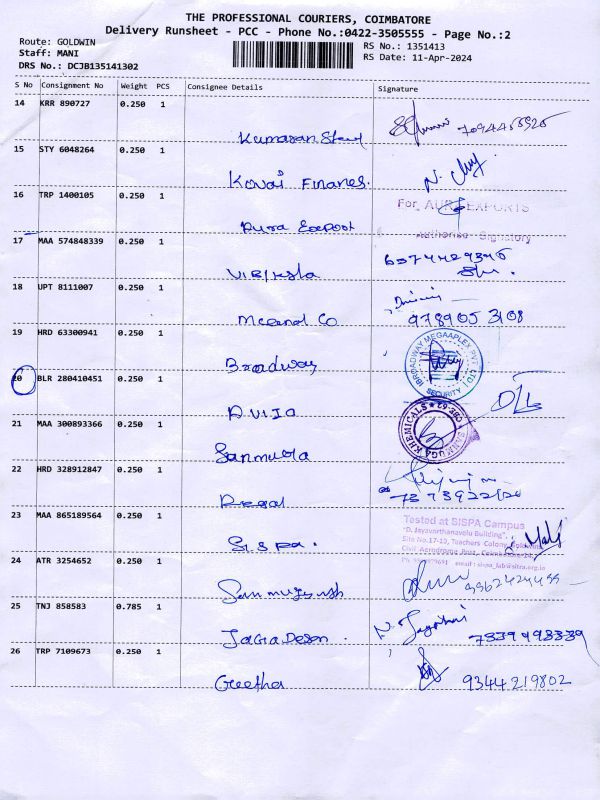 THE PROFESSIONAL COURIERS, COIMBATORE
Delivery Runsheet - PCC - Phone No.:0422-3505555 - Page No.:2
Route: GOLDWIN
Staff: MANI
DRS No.: DCJB135141302
RS No.: 1351413
RS Date: 11-Apr-2024
S No Consignment No Weight PCS Consignee Details Signature
14 KRR 890727 0.250 1
Kumaran
15 STY 6048264 0.250 1
Kovai Finanes.
N.
16 TRP 1400105 0.250 1
For AURA EXPORTS
Aura Export
Authorise Signatory
17 MAA 574848339 0.250 1
18 UPT 8111007 0.250 1
Meenal Co
978905 3108
19 HRD 63300941 0.250 1
Broadway
BROADWAY MEGAAPLEX PVT LTD
SECURITY
20 BLR 280410451 0.250 1
21 MAA 300893366 0.250 1
Sanmuga
SANMUGA KHEMICALS CBE-62
22 HRD 328912847 0.250 1
Regal
23 MAA 865189564 0.250 1
S.I.S.Pa.
Tested at SISPA Campus
"D. Jayavarthanavelu Building",
Site No.17-19, Teachers Colony, Goldwins,
Civil Aerodrome Post, Coimbatore-14.
24 ATR 3254652 0.250 1
25 TNJ 858583 0.785 1
JaGaDesan.
7339498339
26 TRP 7109673 0.250 1
Geetha
9344219802